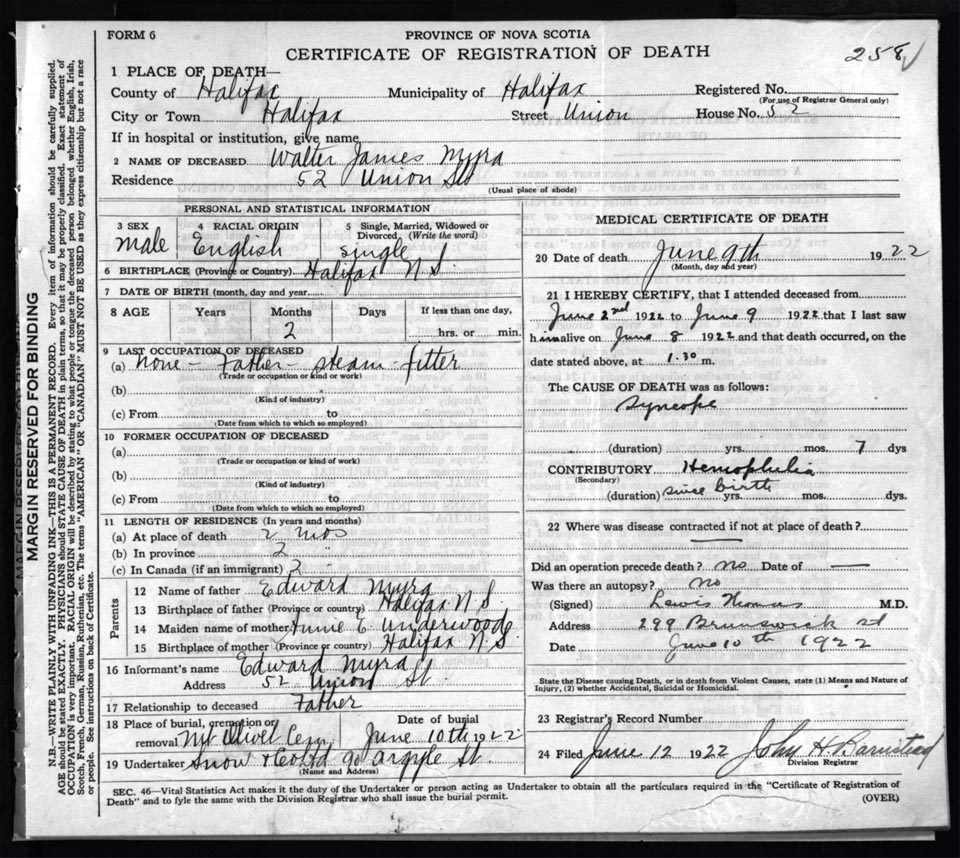 FORM 6
PROVINCE OF NOVA SCOTIA
CERTIFICATE OF REGISTRATION OF DEATH
258
1 PLACE OF DEATH—
County of Halifax Municipality of Halifax Registered No.
(For use of Registrar General only)
City or Town Halifax Street Union House No. 52
If in hospital or institution, give name
2 NAME OF DECEASED Walter James Myra
Residence 52 Union St
(Usual place of abode)
PERSONAL AND STATISTICAL INFORMATION
3 SEX 4 RACIAL ORIGIN 5 Single, Married, Widowed or Divorced, (Write the word)
Male English single
6 BIRTHPLACE (Province or Country). Halifax N.S.
7 DATE OF BIRTH (month, day and year)
8 AGE Years Months Days If less than one day,
2 hrs. or min.
9 LAST OCCUPATION OF DECEASED
(a) None - Father - steam-fitter
(Trade or occupation or kind or work)
(b)
(Kind of industry)
(c) From to
(Date from which to which so employed)
10 FORMER OCCUPATION OF DECEASED
(a)
(Trade or occupation or kind of work)
(b)
(Kind of industry)
(c) From to
(Date from which to which so employed)
11 LENGTH OF RESIDENCE (In years and months)
(a) At place of death 2 mos
(b) In province 2
(c) In Canada (if an immigrant) 2
Parents
12 Name of father Edward Myra
13 Birthplace of father (Province or country) Halifax N S
14 Maiden name of mother Annie E Underwood
15 Birthplace of mother (Province or country) Halifax N.S
16 Informant's name Edward Myra
Address 52 Union St
17 Relationship to deceased Father
18 Place of burial, cremation or Date of burial
removal Mt Olivet Cem June 10th 1922
19 Undertaker Snow & Co Ltd 90 Argyle St.
(Name and Address)
MEDICAL CERTIFICATE OF DEATH
20 Date of death June 9th 1922
(Month, day and year)
21 I HEREBY CERTIFY, that I attended deceased from
June 2nd 1922 to June 9 1922 that I last saw
him alive on June 8 1922 and that death occurred, on the
date stated above, at 1.30 m.
The CAUSE OF DEATH was as follows:
Syncope
(duration) yrs. mos. 7 dys
CONTRIBUTORY Hemophilia
(Secondary)
(duration) since Birth yrs. mos. dys.
22 Where was disease contracted if not at place of death?
Did an operation precede death? no Date of —
Was there an autopsy? no
(Signed) Lewis Thomas M.D.
Address 299 Brunswick st
Date June 10th 1922
State the Disease causing Death, or in death from Violent Causes, state (1) Means and Nature of
Injury, (2) whether Accidental, Suicidal or Homicidal.
23 Registrar's Record Number
24 Filed June 12 1922 John H. Barnstead
Division Registrar
SEC. 46—Vital Statistics Act makes it the duty of the Undertaker or person acting as Undertaker to obtain all the particulars required in the "Certificate of Registration of
Death" and to fyle the same with the Division Registrar who shall issue the burial permit.
(OVER)
MARGIN RESERVED FOR BINDING
N.B.—WRITE PLAINLY WITH UNFADING INK—THIS IS A PERMANENT RECORD. Every item of information should be carefully supplied.
AGE should be stated EXACTLY. PHYSICIANS should STATE CAUSE OF DEATH in plain terms, so that it may be properly classified. Exact statement of
OCCUPATION is very important. RACIAL ORIGIN will be described by stating to what people or tongue the deceased person belonged whether English, Irish,
Scotch, French, German, Russian, Ruthenian, etc. The terms "AMERICAN" OR "CANADIAN" MUST NOT BE USED as they express citizenship but not a race
or people. See instructions on back of Certificate.